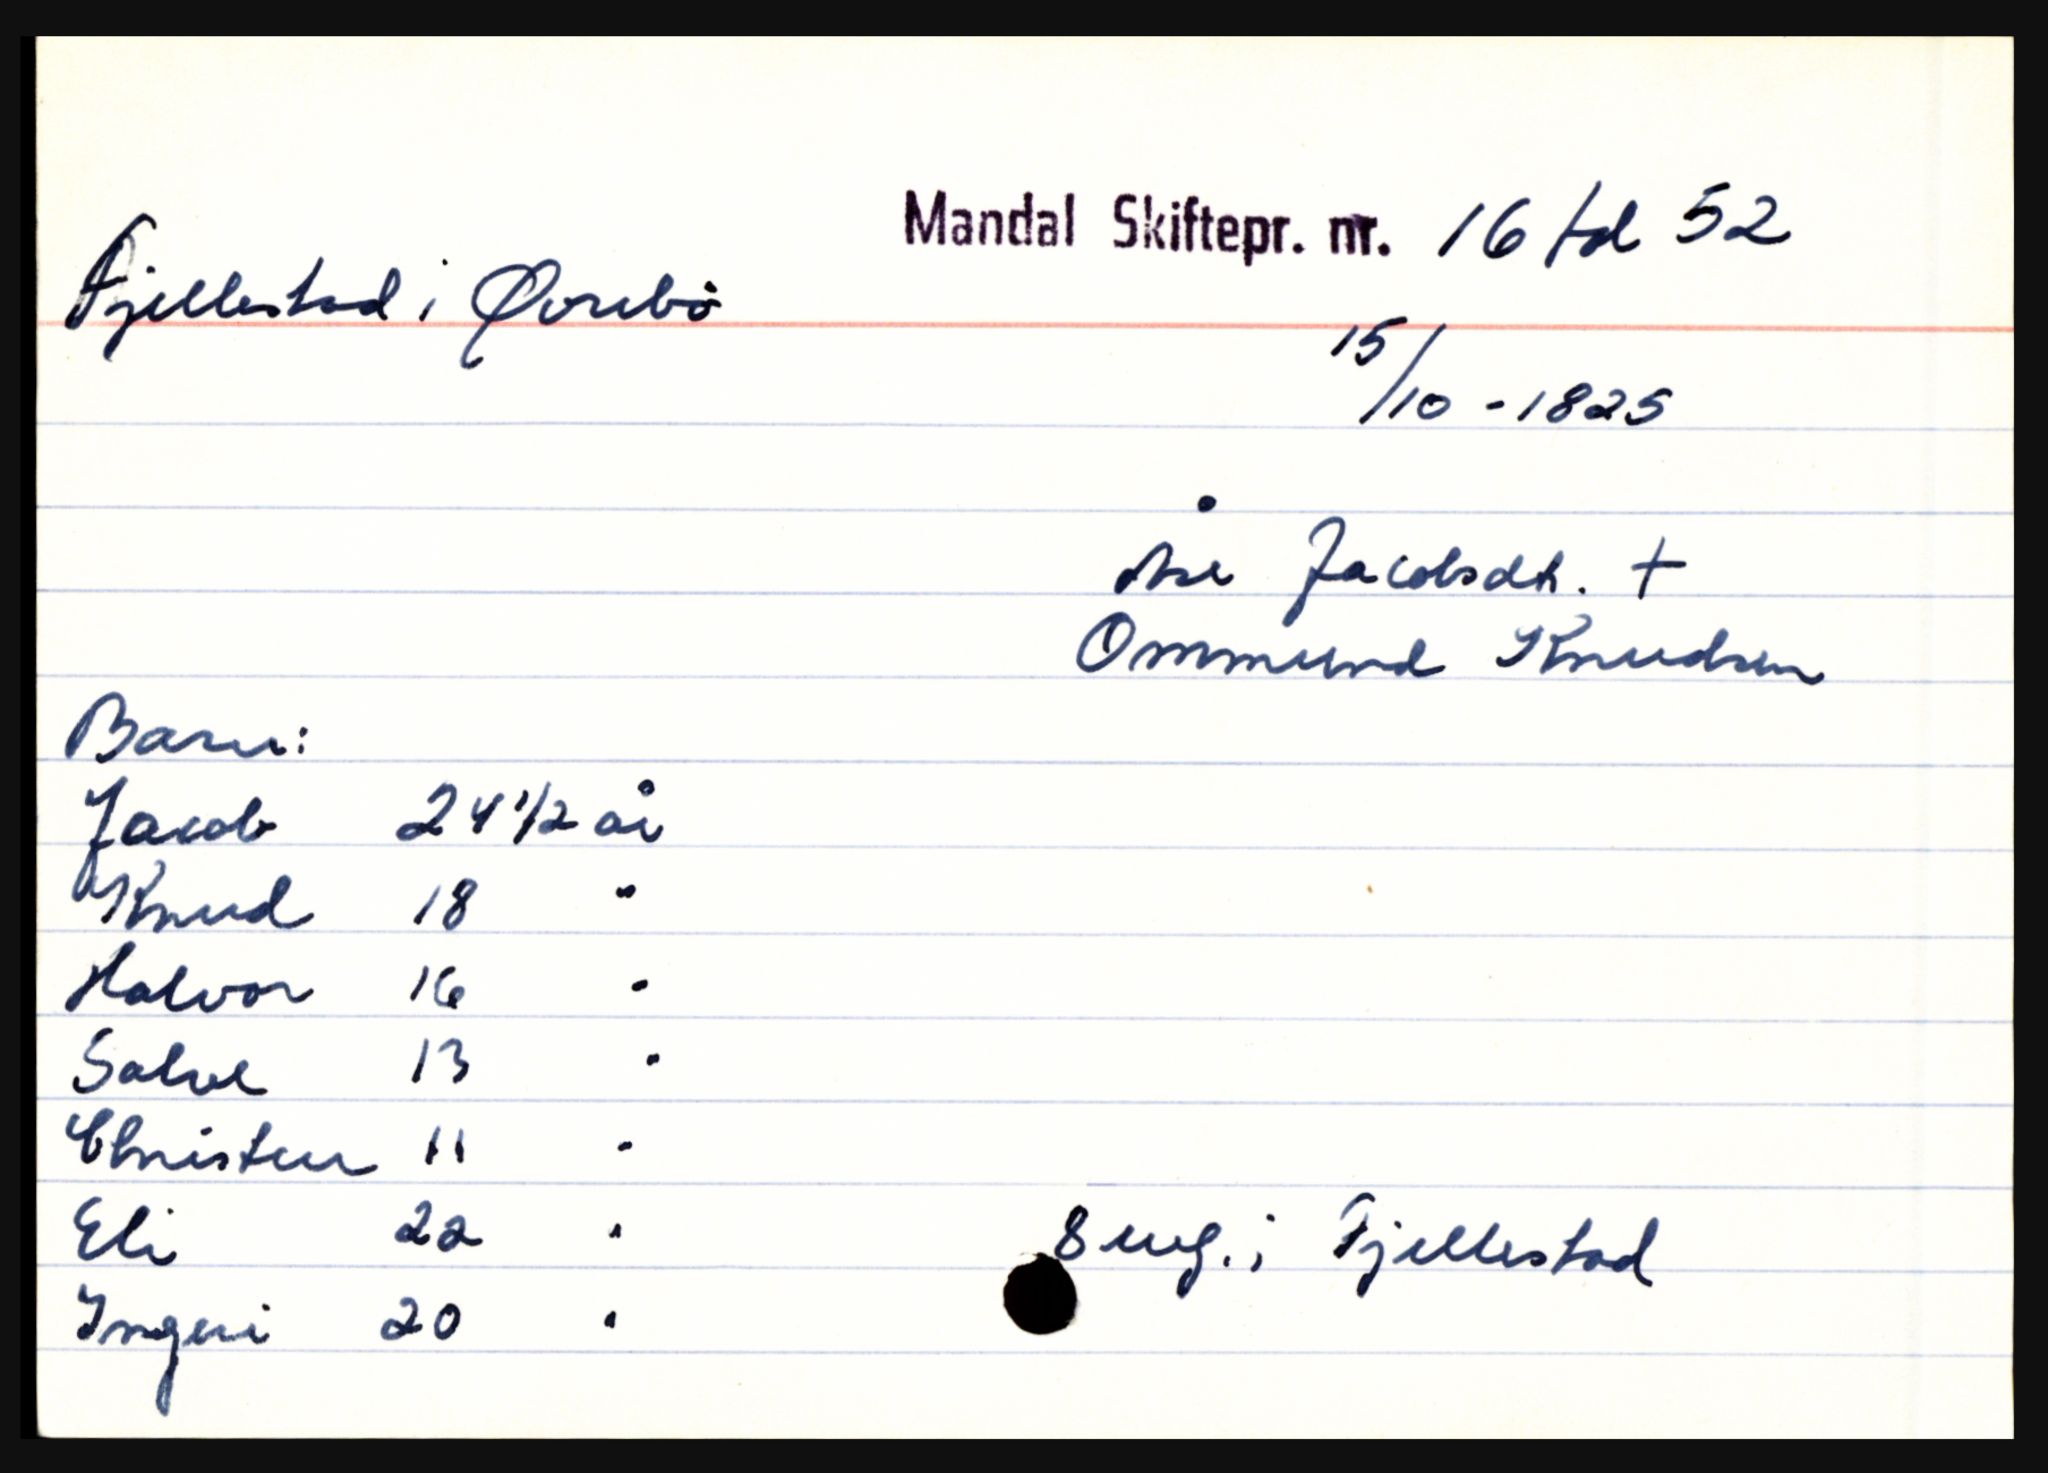 Mandal Skiftepr. nr. 16 fol 52
Fjellestad i Øvrebö
15/10 - 1825
Åse Jacobsdt. +
Ommund Knudsen
Barn:
Jacob 24 1/2 år
Knud 18 "
Halvor 16 "
Salve 13 "
Christen 11 "
Eli 22 " 8 eng. i Fjellestad
Ingeri 20 "